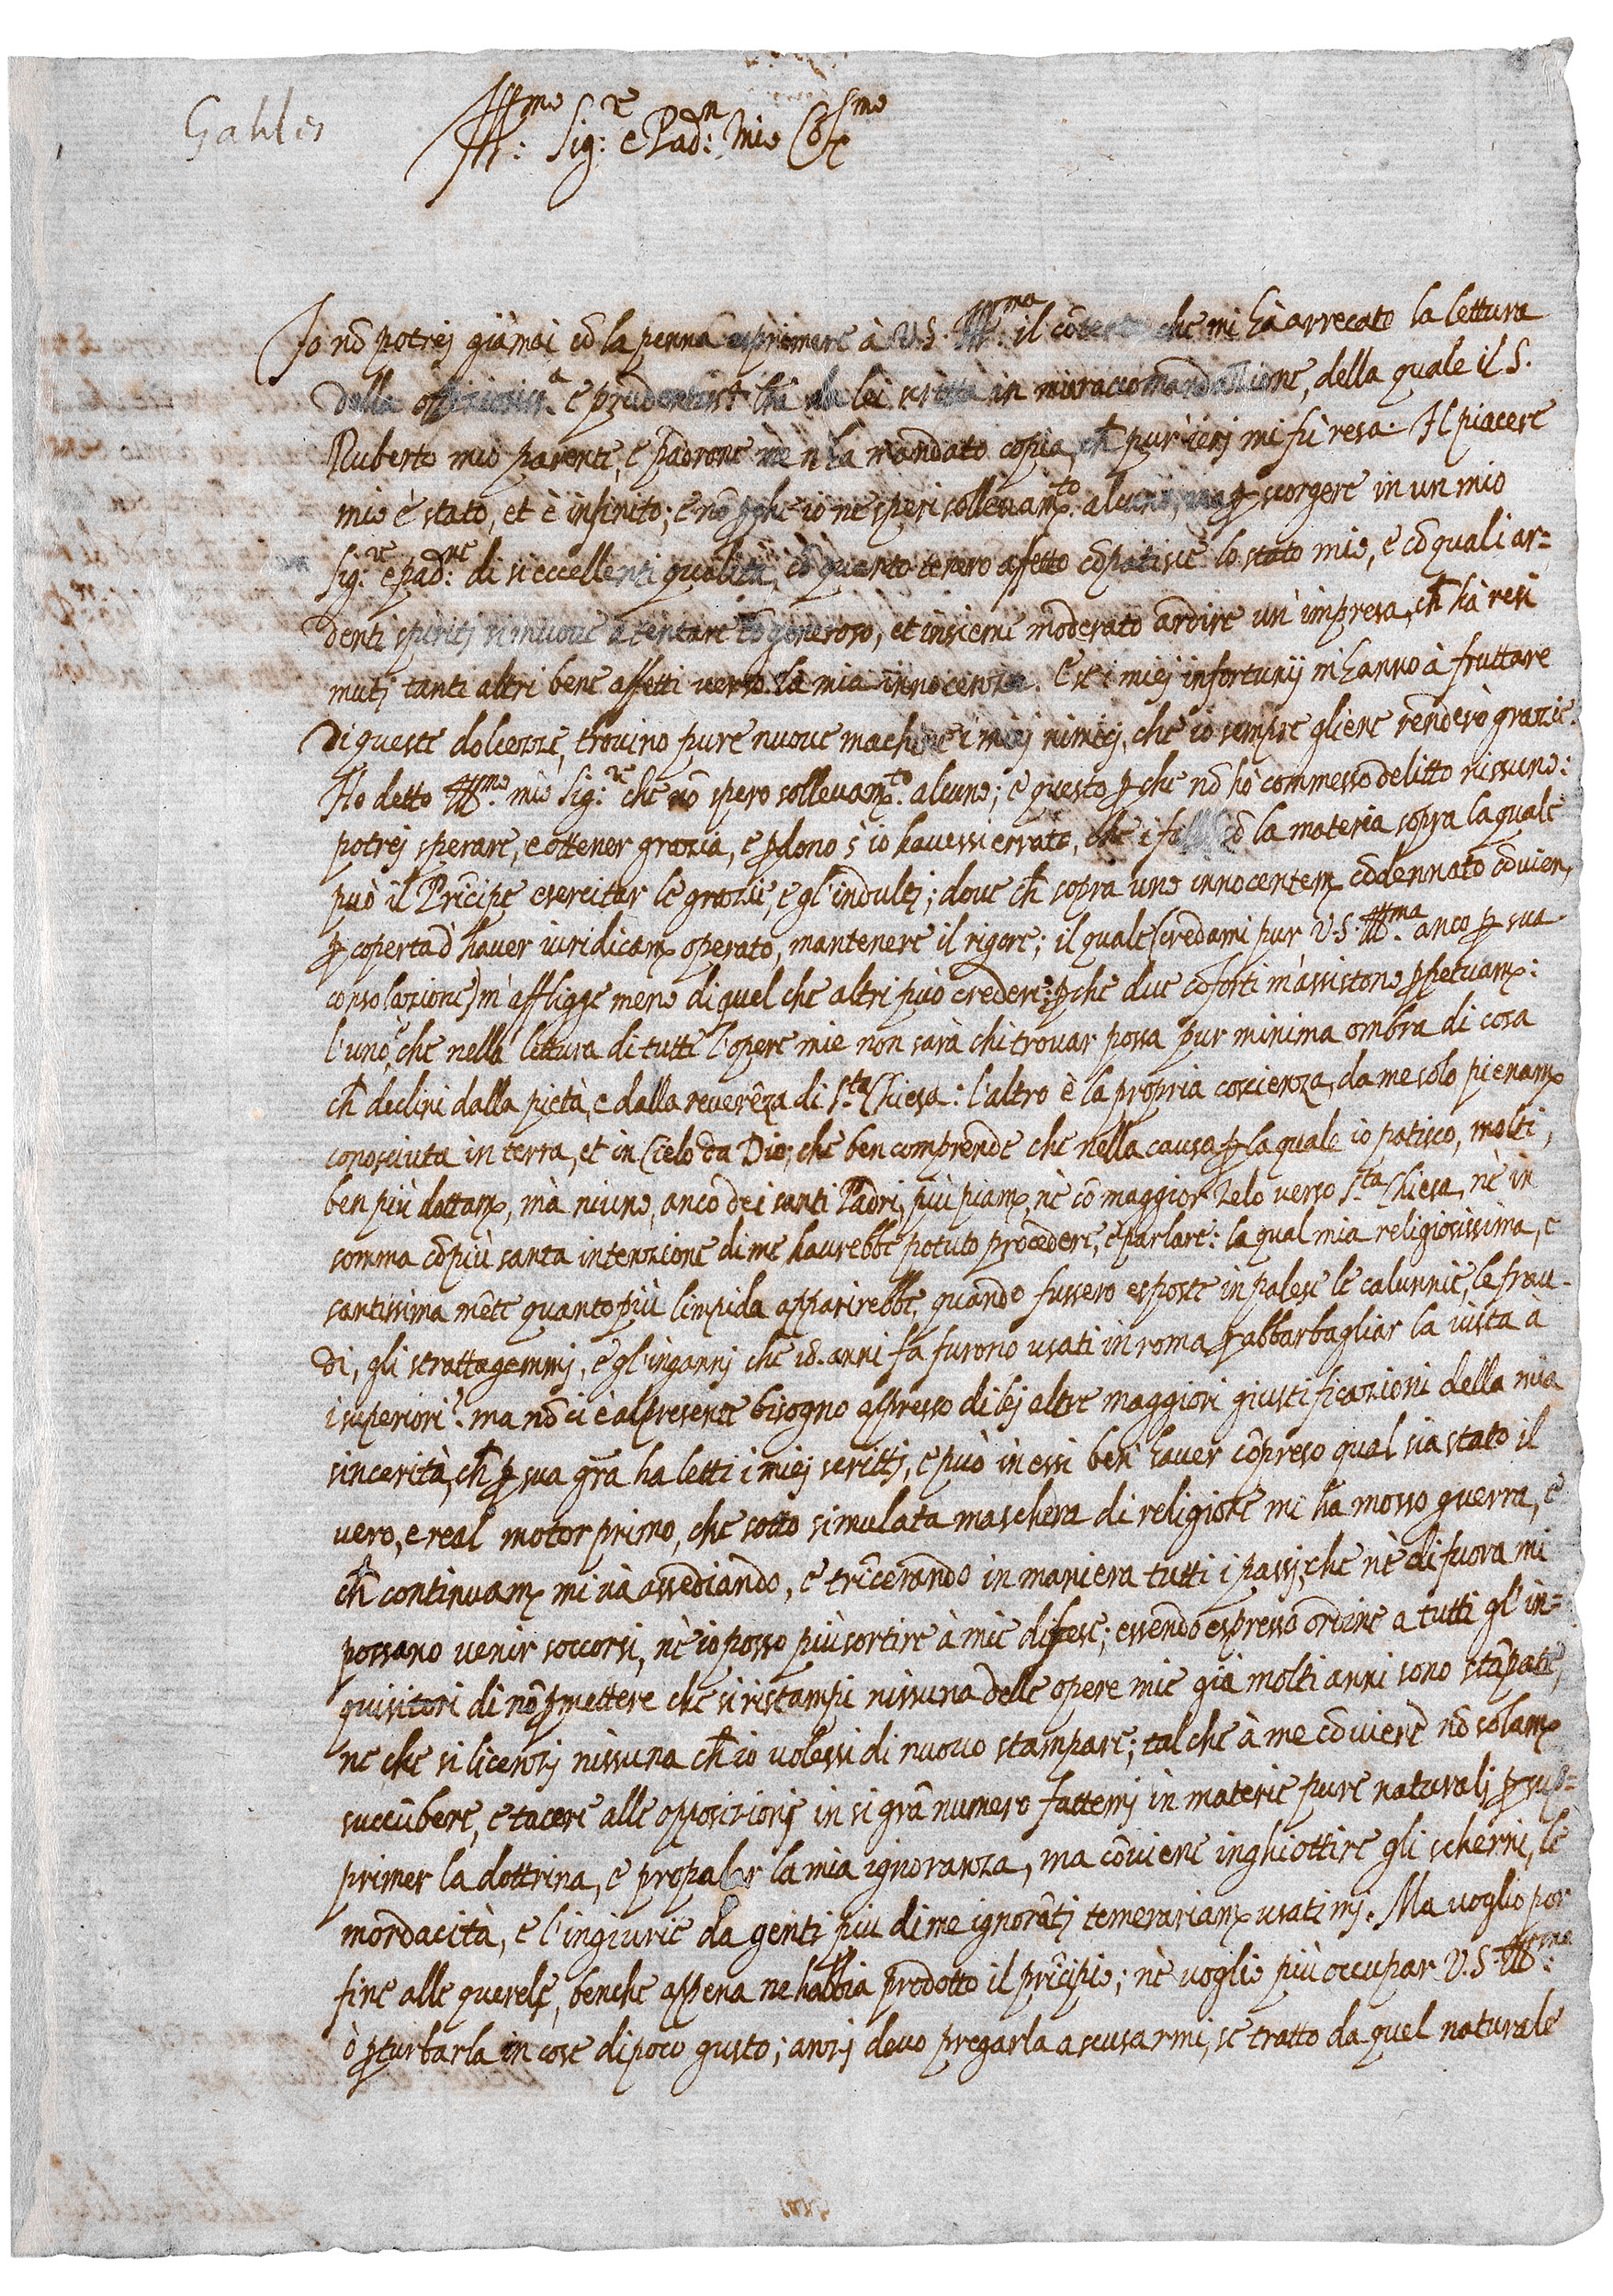 Galileo
Ill.mo Sig.re e Pad.n mio Col.mo
Io nõ potrej giàmai cõ la penna esprimere à V.S. Ill.ma il cõtento che mi hà arrecato la lettura
della e prudentiss.a da lei scritta in mia raccomandazione, della quale il S.
Ruberto mio parente, e padrone me n ha mandato copia, ch̃ pur ierj mi fù resa. Il piacere
mio è stato, et è infinito; e nõ ꝑche io ne speri sollevam.to alcuno, ma ꝑ scorgere in un mio
Sig.re e pad.ne di si eccellenti qualità, cõ quanto tenero affetto cõpatisce lo stato mio, e cõ quali ar=
denti spiritj si muove à tentare cõ generoso, et insieme moderato ardire un' impresa, ch̃ hà resi
mutj tanti altri bene affetti verso la mia innocenza. E se i miej infortunij m'hanno à fruttare
di queste dolcezze, trovino pure nuove machine i miej nimicj, che io sempre gliene renderò grazie.
Ho detto Ill.mo mio Sig.re che nõ spero sollevam.to alcuno; e questo ꝑche nõ hò commesso delitto nissuno:
potrej sperare, e ottener grazia, e ꝑdono s' io havessi errato, che i falli sõ la materia sopra la quale
può il Prĩcipe esercitar le grazie, e gl' indultj; dove ch̃ sopra uno innocentem. cõdennato cõvien,
ꝑ coperta d' haver iuridicam. operato, mantenere il rigore; il quale (credami pur V.S. Ill.ma anco ꝑ sua
consolazione) m' affligge meno di quel che altri può credere; ꝑche due cõforti m'assistono ꝑpetuam.:
l'uno è, che nella lettura di tutte l'opere mie non sarà chi trovar possa pur minima ombra di cosa
ch̃ declini dalla pietà, e dalla reverẽza di S.ta Chiesa: l'altro è la propria coscienza, da me solo pienam.
conosciuta in terra, et in Cielo da Dio; che ben comprende che nella causa ꝑ la quale io patisco, molti,
ben più dottam., mà niuno, anco dei santi Padri, più piam., nè cõ maggior zelo verso S.ta Chiesa, nè in
somma cõ più santa intenzione di me havrebbe potuto procedere, e parlare: la qual mia religiosissima, e
santissima mẽte quanto più limpida apparirebbe, quando fussero esposte in palese le calunnie, le frau-
di, gli strattagemmj, e gl'ingannj che 18. anni fa furono usati in roma ꝑ abbarbagliar la vista à
i superiori: ma nõ ci è al presente bisogno appresso di lej altre maggiori giustificazioni della mia
sincerità, ch̃ ꝑ sua grã ha letti i miej scrittj, e può in essi ben haver cõpreso qual sia stato il
vero, e real motor primo, che sotto simulata maschera di religione mi ha mosso guerra, e
ch̃ continuam. mi và assediando, e trĩcerando in maniera tutti i passi, che nè di fuora mi
possano venir soccorsi, nè io posso più sortire à mie difese; essendo espresso ordine a tutti gl' in=
quisitori di nõ ꝑmettere che si ristampi nissuna delle opere mie già molti anni sono stãpate,
ne che si licenzij nissuna ch̃ io volessi di nuovo stampare; tal che à me cõviene nõ solam.
succũbere, e tacere alle opposizionj in si grã numero fattemj in materie pure naturalj ꝑ sup=
primer la dottrina, e propalar la mia ignoranza, ma cõviene inghiottire gli scherni, le
mordacità, e l' ingiurie da gentj più di me ignorãtj temerariam. usatimj. Ma voglio por
fine alle querele, benche appena ne habbia prodotto il prĩcipio; nè voglio più occupar V.S. Ill.ma
ò ꝑturbarla in cose di poco gusto; anzj devo pregarla a scusarmi, se tratto da quel naturale